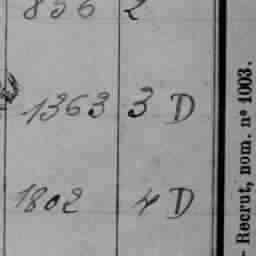 836 2
1363 3 D
1802 4 D
- Recrut, nom. nº 1003.